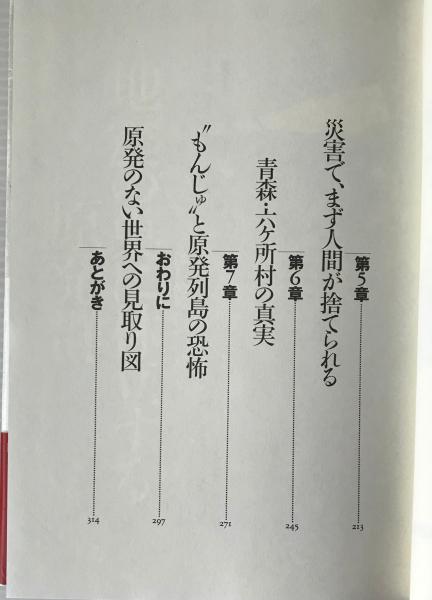 第5章
213
災害で、まず人間が捨てられる
第6章
245
青森・六ケ所村の真実
第7章
271
〝もんじゅ〟と原発列島の恐怖
おわりに
297
原発のない世界への見取り図
あとがき
314